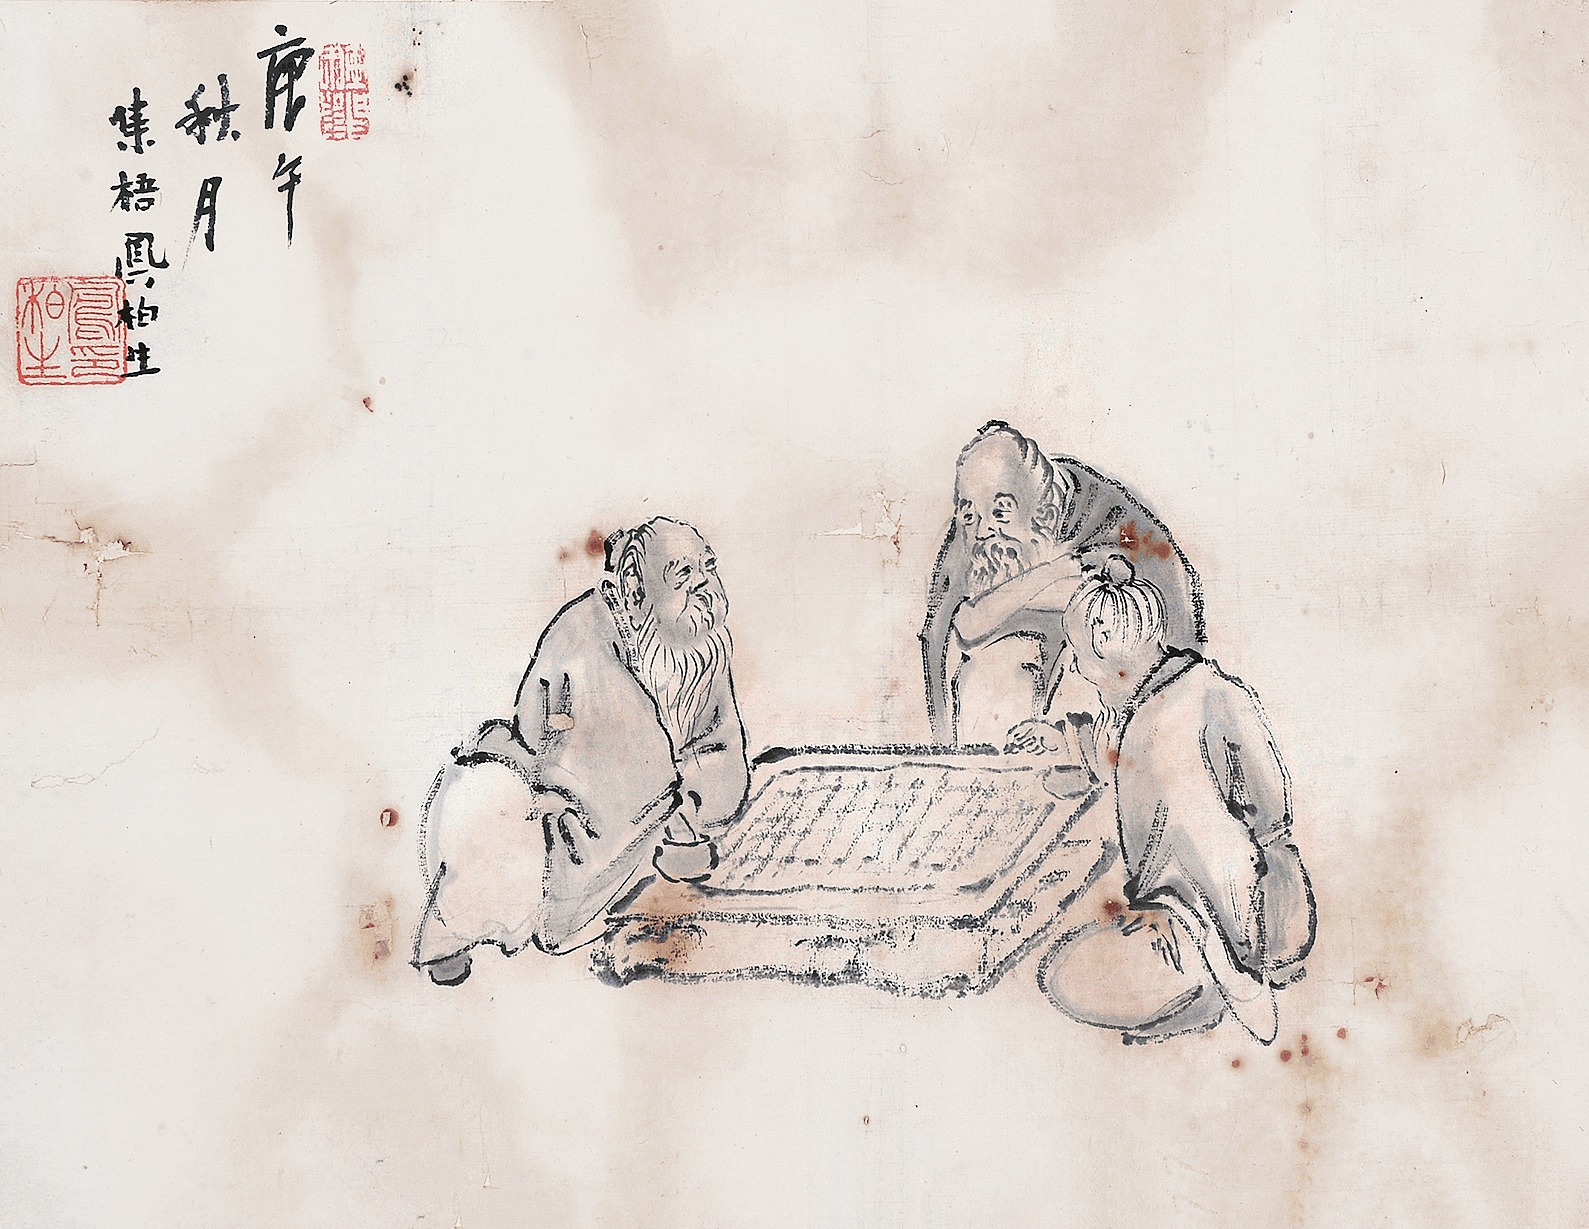 庚午
秋月
集梧柏生
柏生